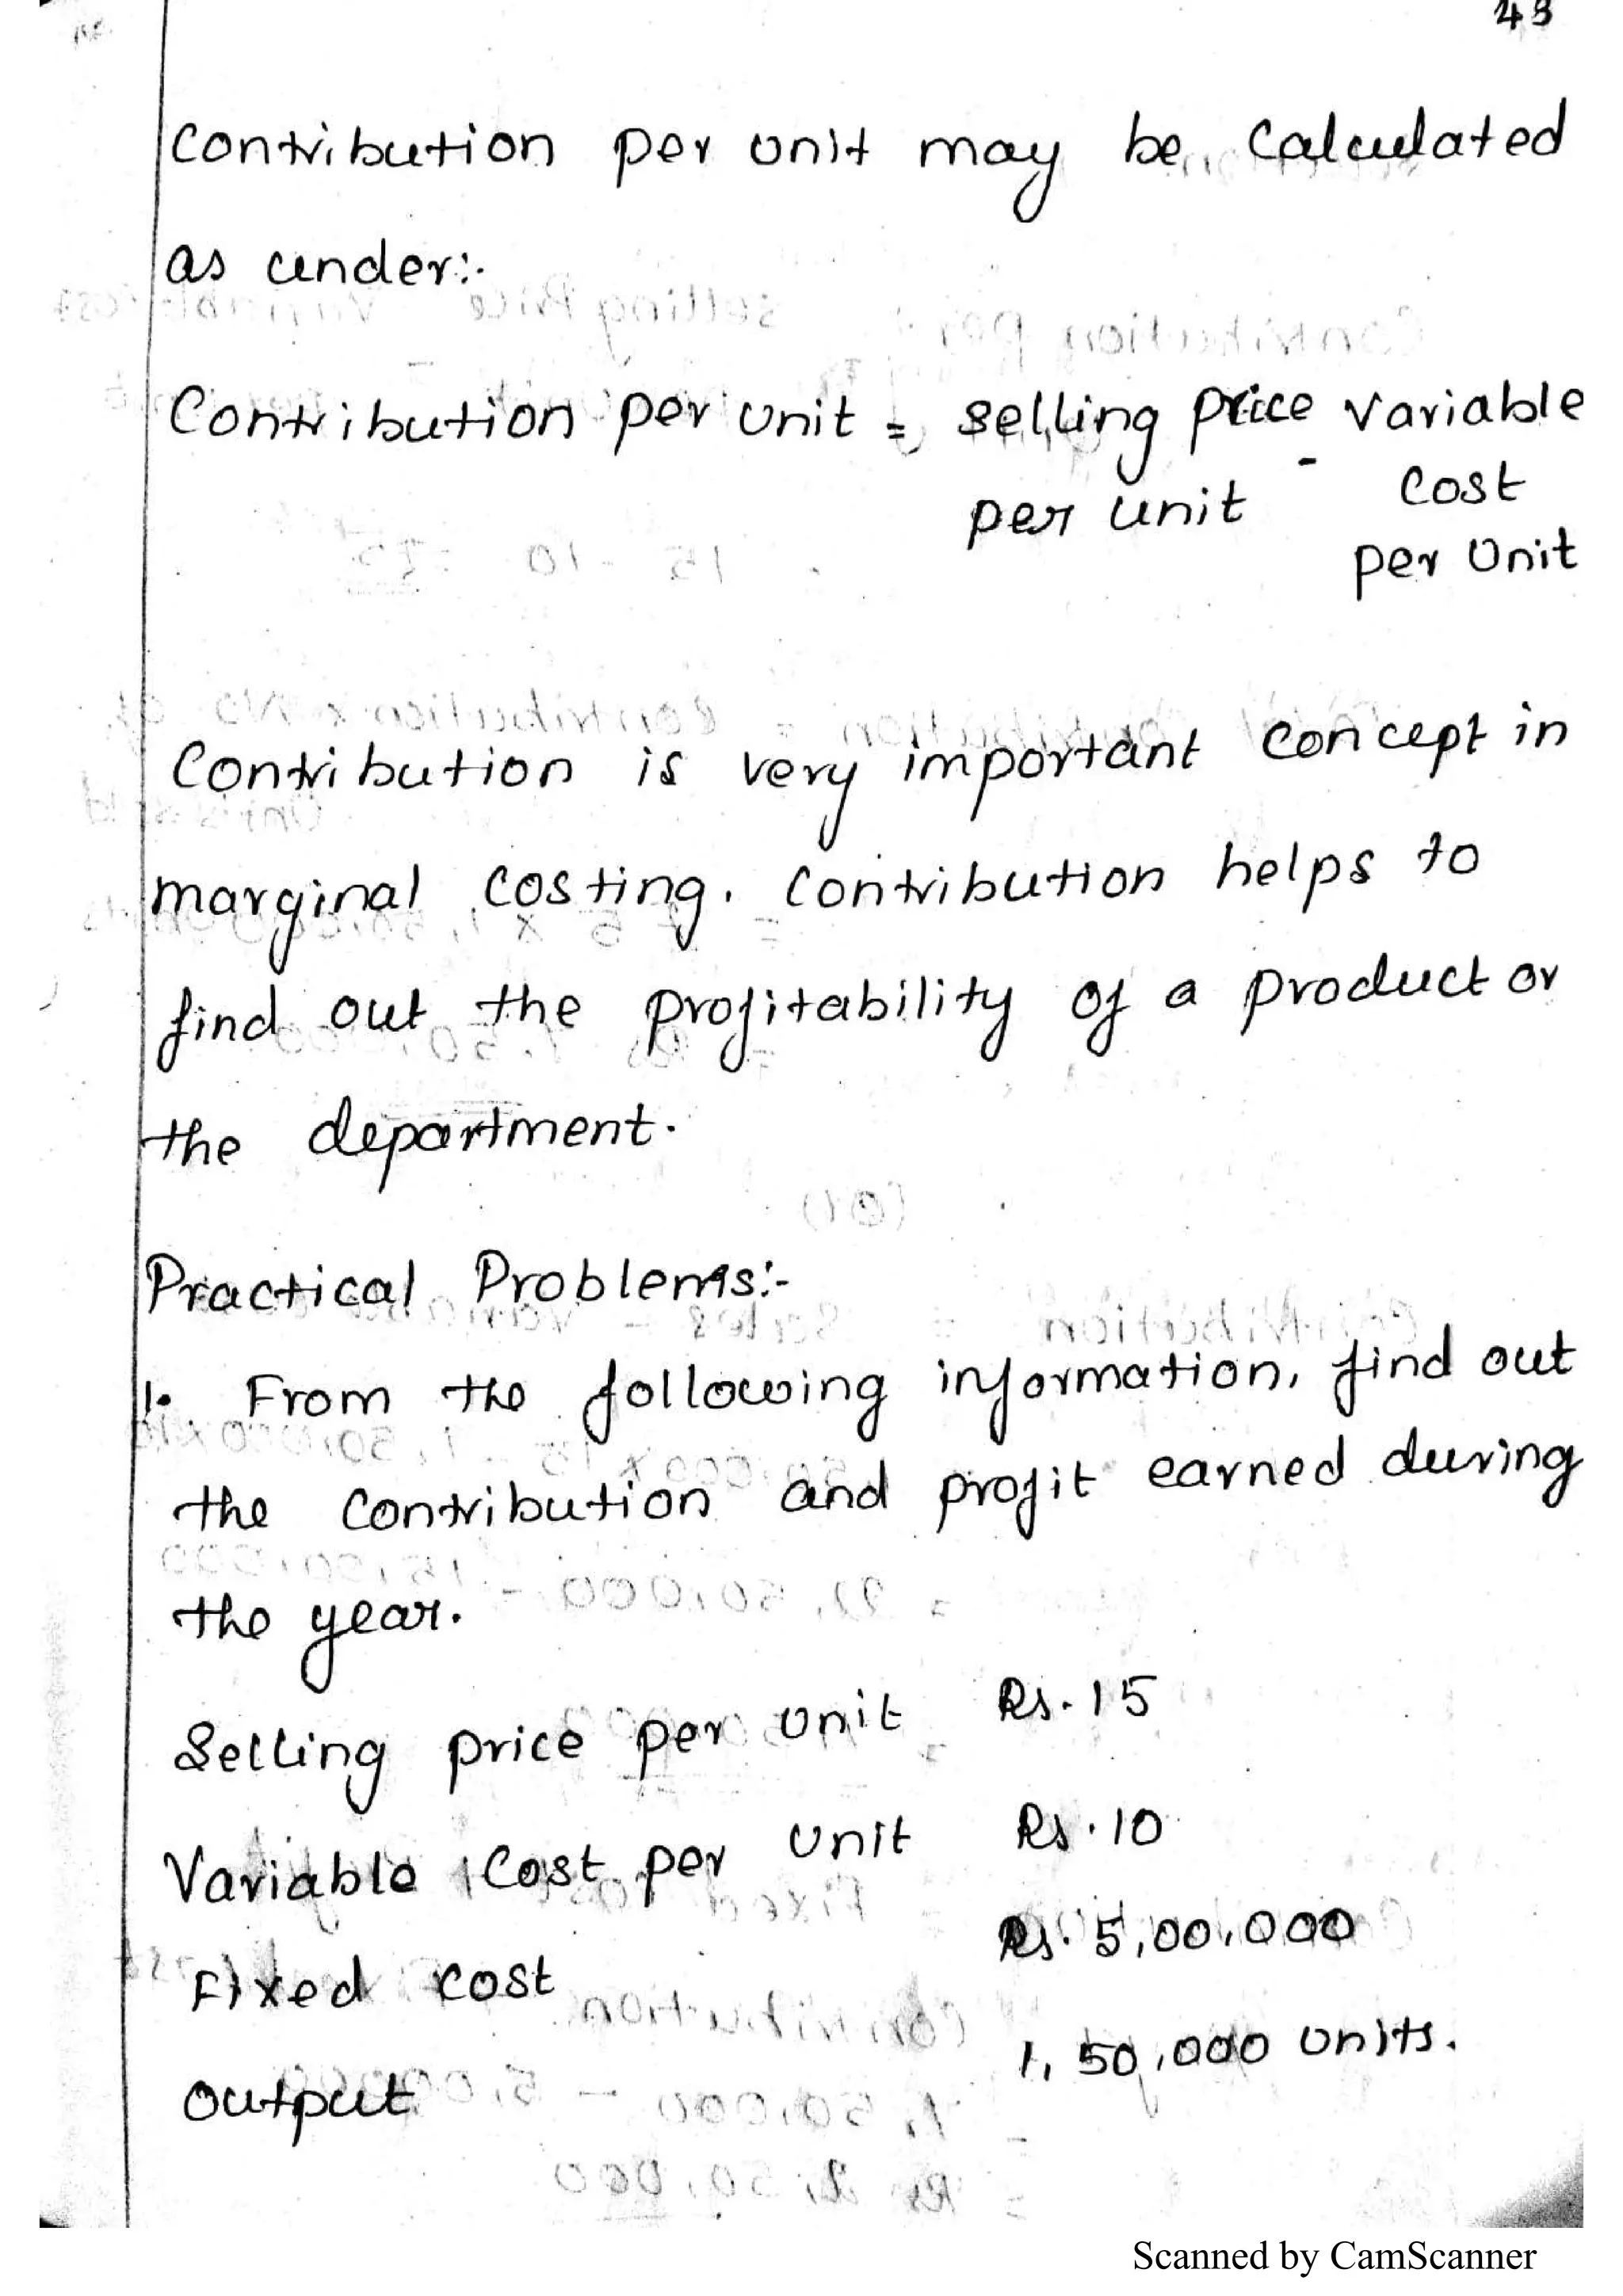 43
Contribution per unit may be calculated
as under:-
Contribution per unit = selling price - variable
per unit cost
per unit
Contribution is very important concept in
marginal costing. Contribution helps to
find out the profitability of a product or
the department.
Practical Problems:-
1. From the following information, find out
the contribution and profit earned during
the year.
Selling price per unit Rs. 15
Variable cost per unit Rs. 10
Fixed cost Rs. 5,00,000
Output 1,50,000 units.
Scanned by CamScanner